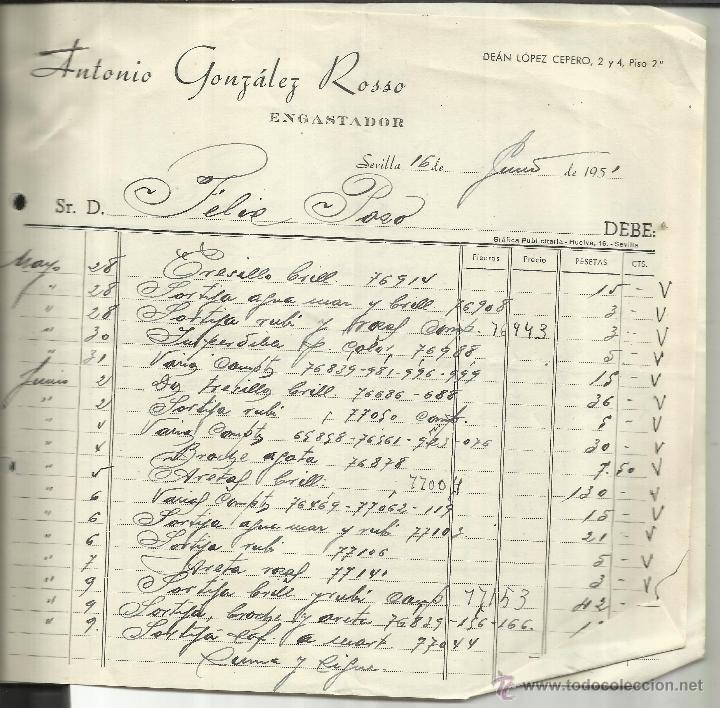 Antonio González Rosso
DEÁN LÓPEZ CEPERO, 2 y 4, Piso 2º
ENGASTADOR
Sevilla 16 de Junio de 1951
Sr. D. Félix Pozo
DEBE:
Gráfica Publicitaria - Huelva, 16. - Sevilla
Precio PESETAS CTS.
Mayo 28 Tresillo brill. 76914 15 - V
" 28 Sortija agua mar y brill. 76908 3 - V
" 28 Sortija rubi y rosas comp. 76943 3 - V
" 30 color, 76988 5 - V
" 31 Varias Compts 76839-981-996-999 15 - V
Junio 2 Dos tresillo brill 76686-688 36 - V
" 2 Sortija rubi 77050 comp. 5 - V
" 4 Varias Compts 65858-76561-943-076 30 - V
" 4 Broche agata 76878 7.50 V
" 5 Aretas brill. 77004 130 - V
" 6 Varias Compts 76469-77062-119 15 - V
" 6 Sortija agua mar y rubi 77103 21 - V
" 6 Sortija rubi 77106 5 - V
" 7 Areta rosas 77141 3 - V
" 9 Sortija brill y rubi comp 77153 42 -
" 9 Sortija, broche y areta 76829-156-166.
" 9. Sortija 77044
Suma y Sigue.
todocoleccion
www.todocoleccion.net